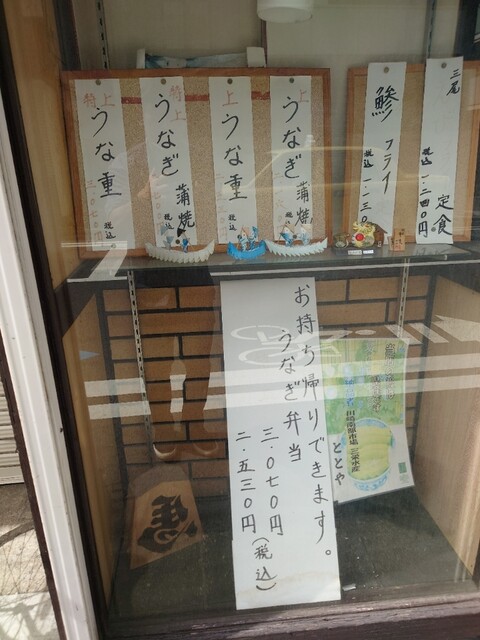 三尾
定食
税込 一.二四〇円
鯵フライ
税込 一.一三〇
上
うなぎ蒲焼
税込
上
うな重
税込
特上
うなぎ蒲焼
税込
特上
うな重
税込
三.〇七〇
お持ち帰りできます。
うなぎ弁当
三.〇七〇円
二.五三〇円(税込)
川越南卸市場
ととや